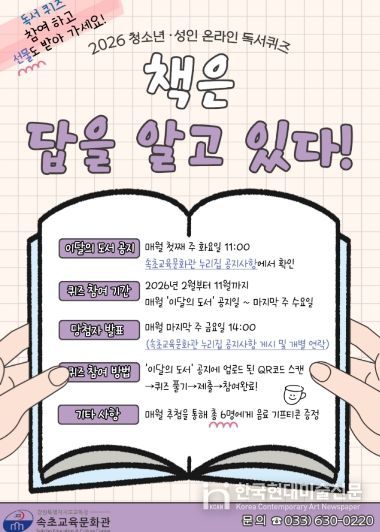 독서 퀴즈
참여 하고
선물도 받아 가세요!
2026 청소년·성인 온라인 독서퀴즈
책은
답을 알고 있다!
이달의 도서 공지 매월 첫째 주 화요일 11:00
속초교육문화관 누리집 공지사항에서 확인
퀴즈 참여 기간 2026년 2월부터 11월까지
매월 '이달의 도서' 공지일 ~ 마지막 주 수요일
당첨자 발표 매월 마지막 주 금요일 14:00
(속초교육문화관 누리집 공지사항 게시 및 개별 연락)
퀴즈 참여 방법 '이달의 도서' 공지에 업로드 된 QR코드 스캔
→퀴즈 풀기→제출→참여완료!
기타 사항 매월 추첨을 통해 총 6명에게 음료 기프티콘 증정
한국현대미술신문
KCAN Korea Contemporary Art Newspaper
강원특별자치도교육청
속초교육문화관
문의 ☎ 033) 630-0220